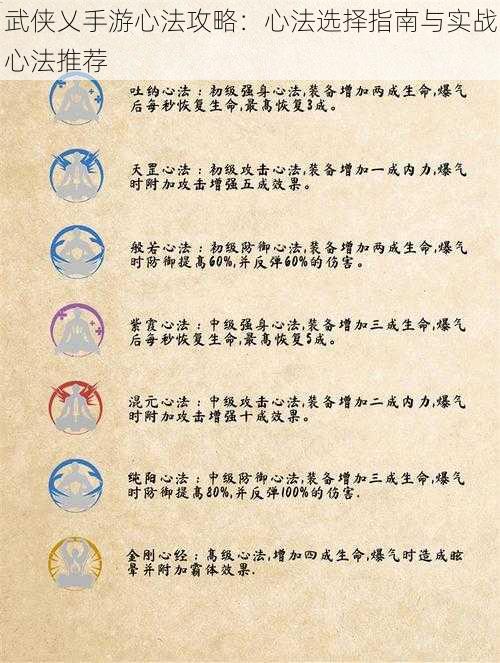 武侠乂手游心法攻略：心法选择指南与实战
心法推荐
吐纳心法：初级强身心法,装备增加两成生命,爆气
后每秒恢复生命,最高恢复3成。
天罡心法：初级攻击心法,装备增加一成内力,爆气
时附加攻击增强五成效果。
般若心法：初级防御心法,装备增加两成生命,爆气
时防御提高60%,并反弹60%的伤害。
紫霞心法：中级强身心法,装备增加三成生命,爆气
后每秒恢复生命,最高恢复5成。
混元心法：中级攻击心法,装备增加二成内力,爆气
时附加攻击增强十成效果。
纯阳心法：中级防御心法,装备增加三成生命,爆气
时防御提高80%,并反弹100%的伤害.
金刚心经：高级心法,增加四成生命,爆气时造成眩
晕并附加霸体效果.